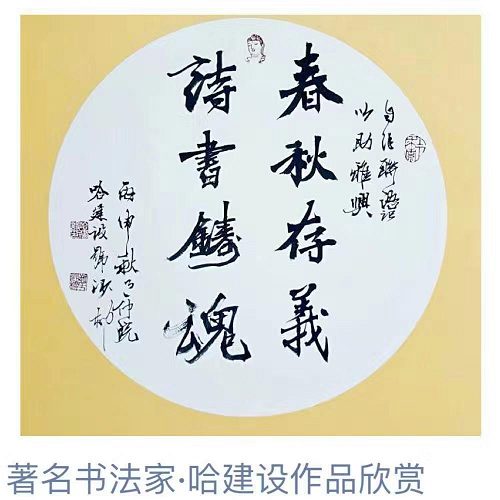 自作聯語
以助雅興
春秋存義
詩書鑄魂
丙申秋
哈建设
著名书法家·哈建设作品欣赏